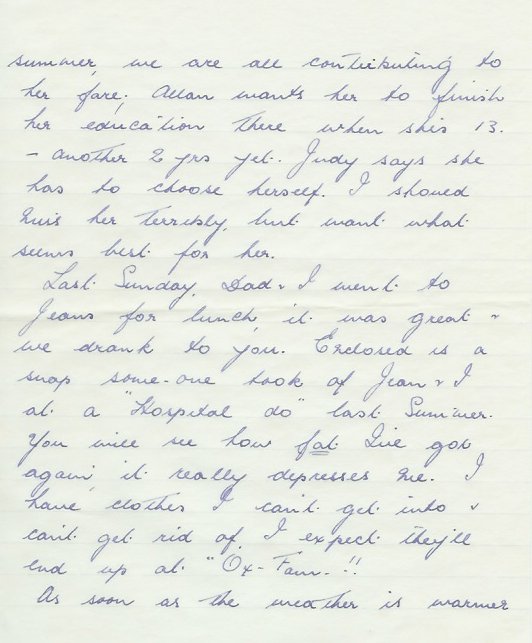 summer, we are all contributing to
her fare; Allan wants her to finish
her education there when she's 13.
- another 2 yrs yet. Judy says she
has to choose herself. I should
miss her terribly, but want what
seems best for her.
Last Sunday, Dad & I went to
Jeans for lunch, it was great &
we drank to you. Enclosed is a
snap some-one took of Jean & I
at a "Hospital do" last Summer.
You will see how fat I've got
again, it really depresses me. I
have clothes I can't get into &
can't get rid of. I expect they'll
end up at "Ox-Fam-!!
As soon as the weather is warmer